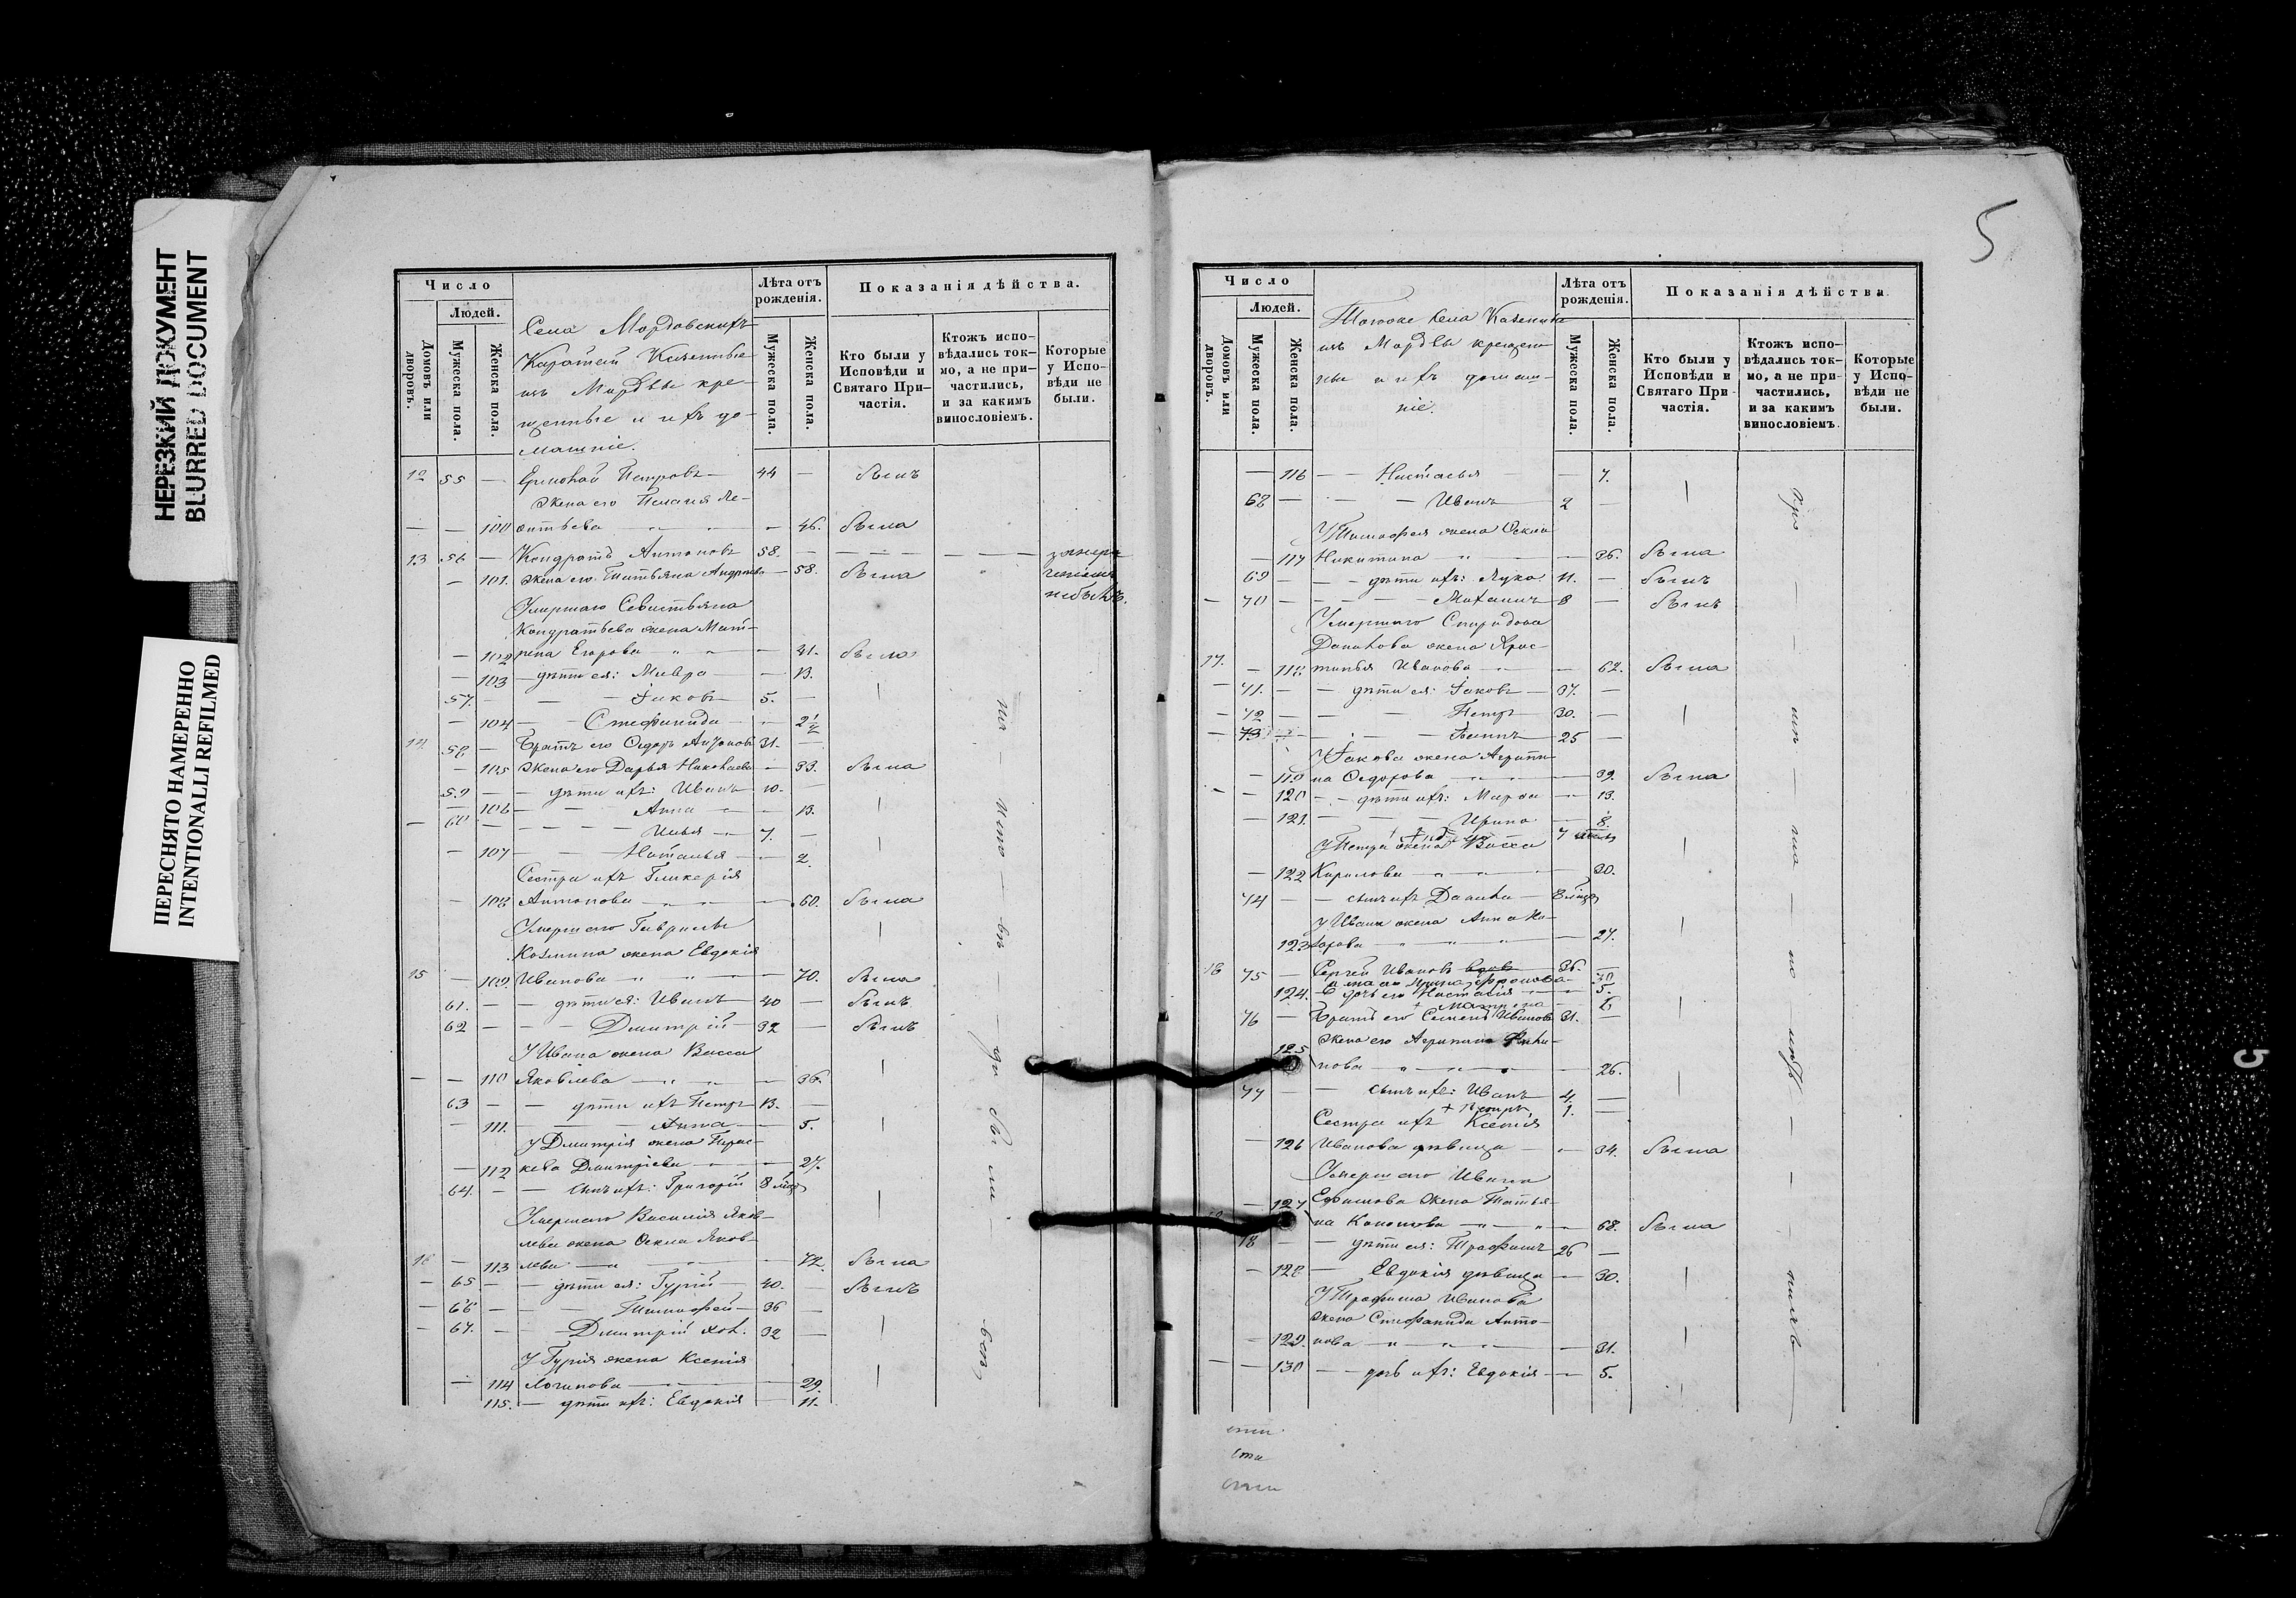 НЕРЕЗКИЙ ДОКУМЕНТ
BLURRED DOCUMENT
ПЕРЕСНЯТО НАМЕРЕННО
INTENTIONALLI REFILMED
Число
Людей.
Домовъ или дворовъ.
Мужеска пола.
Женска пола.
Села Мордовскихъ
Каратай Казенные
изъ Мордвы кре-
щенные и ихъ до-
машніе.
Лѣта отъ рожденія.
Мужеска пола.
Женска пола.
Показанія дѣйства.
Кто были у Исповѣди и Святаго При-частія.
Ктожъ испо-вѣдались ток-мо, а не при-частились, и за какимъ винословіемъ.
Которые у Испо-вѣди не были.
12 55 — Ермолай Петровъ 44 — былъ
Жена его Пелагія Ле-
— — 100 онтьева — 46. была
13 56 — Кондратъ Антоновъ 58. —
— 101. Жена его Татьяна Андреева — 58. была
небылъ.
Умершаго Севастьяна
Кондратьева жена Мат-
— 102 рена Егорова — 41. была
— 103 — дѣти ея: Мавра — 13.
57. — — Іаковъ 5. —
— 104 — Стефанида — 2½
14 58 — Братъ его Ѳедоръ Антоновъ 31. —
— 105 Жена его Дарья Николаева — 33. была
59 — — дѣти ихъ: Иванъ 10. —
— 106 — Анна — 13.
— 60 — Илья 7. —
— 107 — Наталья — 2.
Сестра ихъ Гликерія
— 108 Антонова — 60. была
Умершаго Гаврилы
Козмина жена Евдокія
15 — 109. Иванова — 70. была
61. — — дѣти ея: Иванъ 40 — былъ
62 — — Дмитрій 32 — былъ
У Ивана жена Васса
— — 110 Яковлева — 36.
63 — — дѣти ихъ Петръ 13. —
— 111. — Анна — 5.
У Дмитрія жена Парас-
— 112 кева Дмитріева — 27.
64. — — сынъ ихъ: Григорій 8 мѣс
Умершаго Василія Яков-
лева жена Ѳекла Яков-
16 — 113 лева — 72. была
— 65 — — дѣти ея: Гурій 40. — былъ
— 66 — — Тимофей 36 —
— 67. — — Дмитрій хол. 32 —
У Гурія жена Ксенія
— 114 Логинова — 29.
115. — дѣти ихъ: Евдокія — 11.
5
Число
Людей.
Домовъ или дворовъ.
Мужеска пола.
Женска пола.
Тогоже села Казенные
изъ Мордвы крещен-
ные и ихъ домаш-
ніе.
Лѣта отъ рожденія.
Мужеска пола.
Женска пола.
Показанія дѣйства
Кто были у Исповѣди и Святаго При-частія.
Ктожъ испо-вѣдались ток-мо, а не при-частились, и за какимъ винословіемъ.
Которые у Испо-вѣди не были.
— 116 — Настасья — 7.
68 — — Иванъ 2 —
У Тимофея жена Ѳекла
— 117 Никитина — 36. была
69 — — дѣти ихъ: Лука 11. — былъ
— 70 — — Михаилъ 8 — былъ
Умершаго Спиридона
Данилова жена Хрис-
17. — 118 тинья Иванова — 62. была
— 71. — — дѣти ея: Іаковъ 37. —
— 72 — — Петръ 30. —
— 73 — — Иванъ 25 —
У Іакова жена Агрипи-
— 119 на Ѳедорова — 39. была
— — 120 — дѣти ихъ: Марѳа — 13.
— 121. — Ирина — 8.
У Петра жена Васса
— 122 Кирилова — 30.
74 — — сынъ ихъ Данила 8 мѣс
У Ивана жена Анна
123 — 27.
18 75 — Сергей Ивановъ 36. —
124. дочь его Настасія — 5.
76 — Братъ его Семенъ Ивановъ 31. —
Жена его Агрипина
125 нова — 26.
77 — — сынъ ихъ: Иванъ 4. —
+ Петръ 1. —
Сестра ихъ Ксенія
— 126 Иванова дѣвица — 34. была
Умершаго Ивана
— 127 Ефимова жена Татья-
на Кононова — 68. была
78 — — дѣти ея: Трофимъ 26 —
— 128 — Евдокія дѣвица — 30.
У Трофима Иванова
жена Стефанида Анто-
— 129. нова — 31.
— — 130 — дочь ихъ: Евдокія — 5.
5